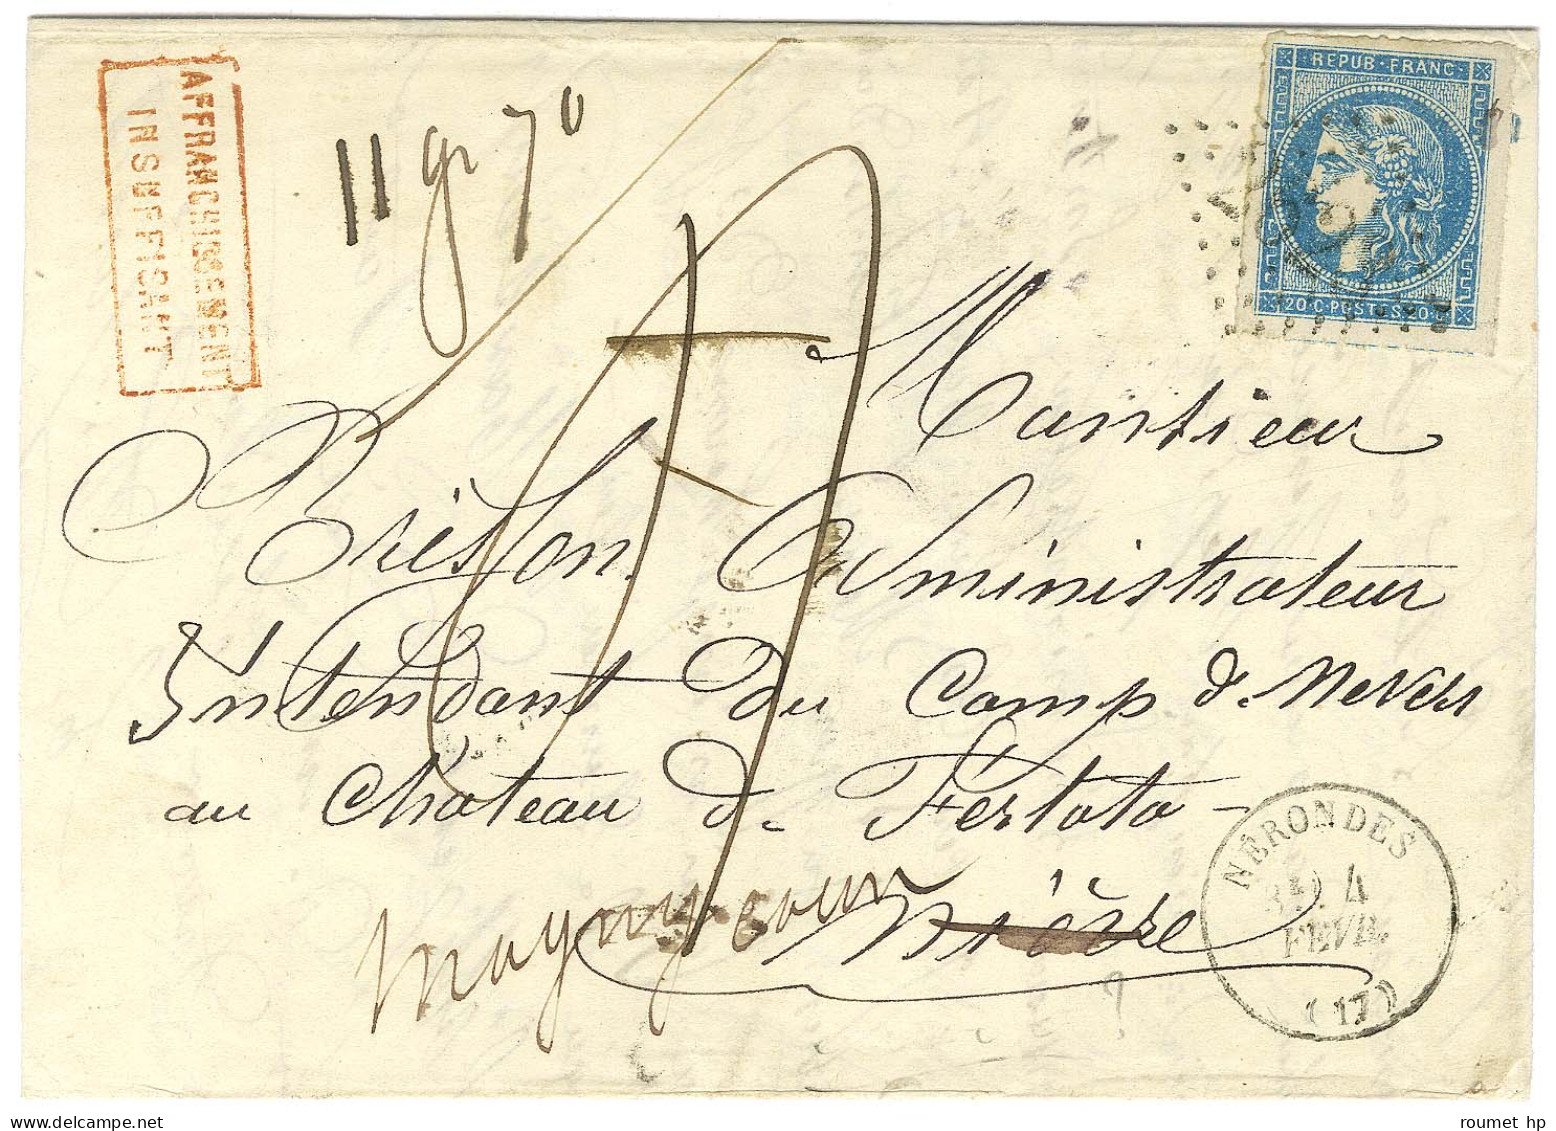 AFFRANCHISSEMENT
INSUFFISANT
11 gr 70
REPUB·FRANC
20 C POSTES 20 C
Monsieur
Brisson Administrateur
Intendant du Camp de Nevers
au Château de
Nièvre
Magny cour
NÉRONDES
4
FEVR.
(17)
roumet hp